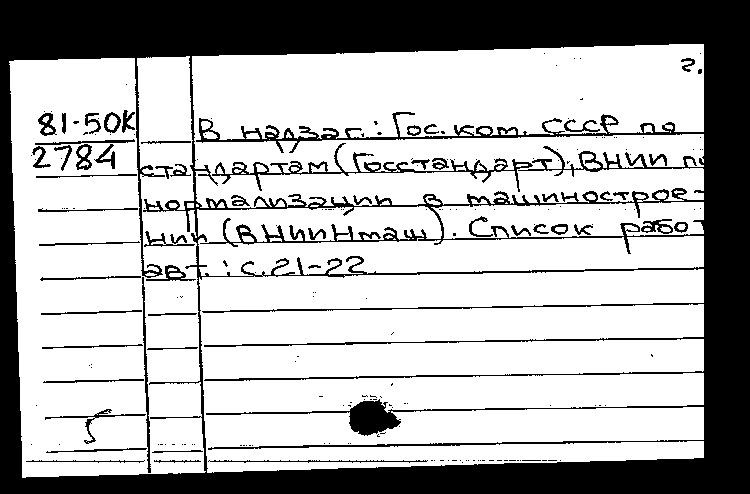 2.
81-50К В надзаг.: Гос. ком. СССР по
2784 стандартам (Госстандарт), ВНИИ по
нормализации в машинострое-
нии (ВНИИНмаш). Список работ
авт.: с. 21-22
5